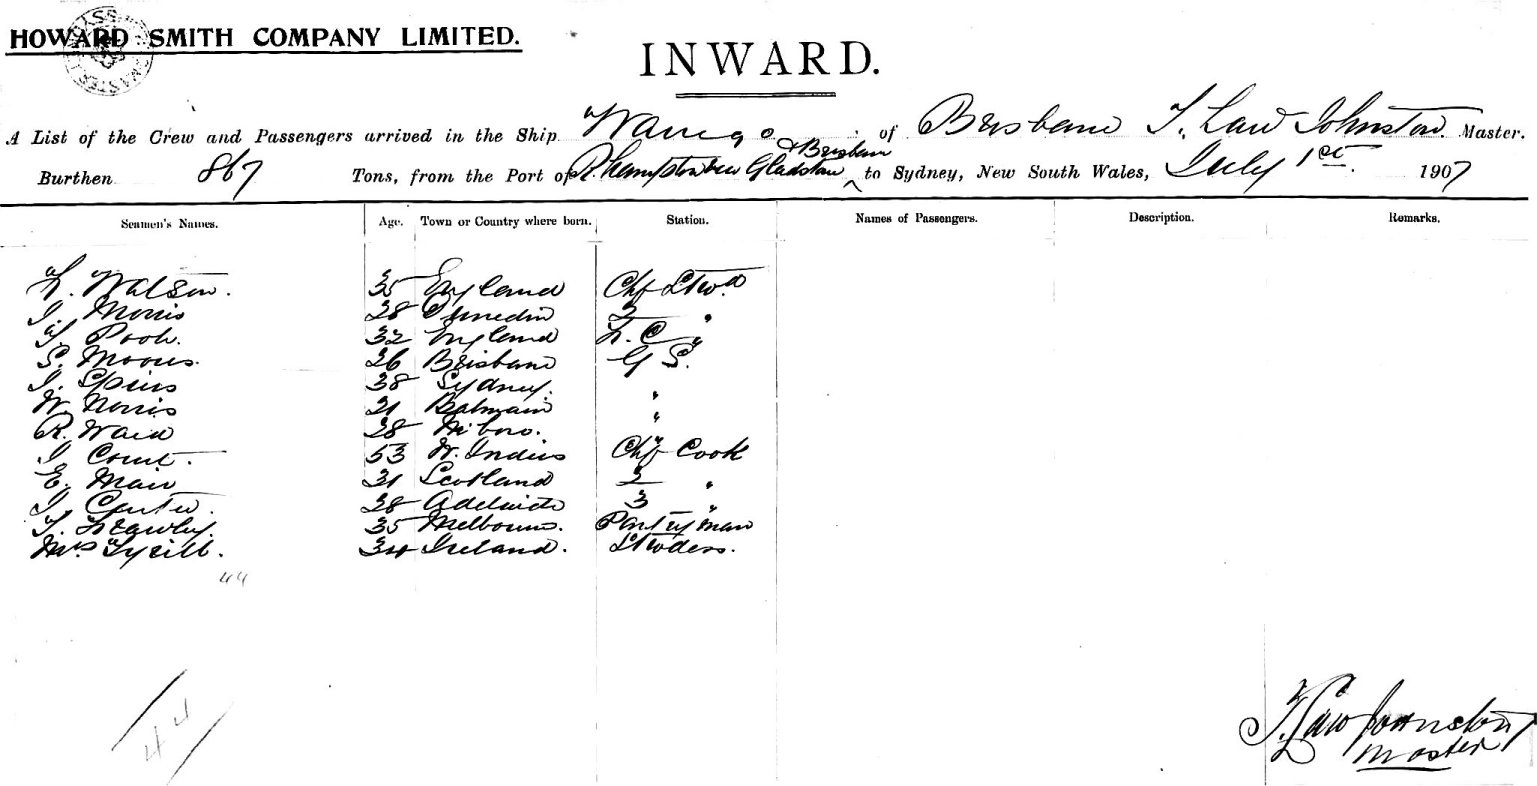 HOWARD SMITH COMPANY LIMITED.
INWARD.
A List of the Crew and Passengers arrived in the Ship Warrego of Brisbane T. Law Johnston Master.
& Brisbane
Burthen 867 Tons, from the Port of Rhampton Gladstone to Sydney, New South Wales, July 1st 1907
Seamen's Names. Age. Town or Country where born. Station. Names of Passengers. Description. Remarks.
Watson. 35 England Chf Stwd
J. Morris 28 Dunedin 2 "
Pook. 32 England "
S. Moores. 26 Brisbane G S.
J. Spiers 38 Sydney. "
W. Norris 21 Balmain "
R. Waid 28 M'boro. "
J Court. 53 W. Indies Chf Cook
E. Mair 31 Scotland 2 "
J. Carter. 28 Adelaide 3 "
T. Frawley. 35 Melbourne. Pantryman
Mrs Tyrill. 34 Ireland. Stwdess.
44
44
T. Law Johnston
Master